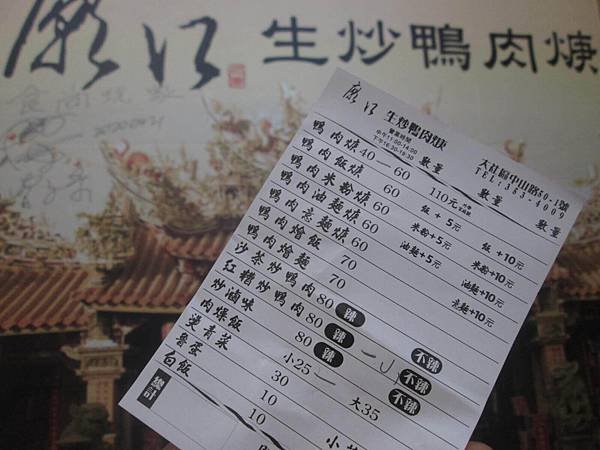 廟江 生炒鴨肉焿
廟江 生炒鴨肉焿
營業時間
中午11:00-14:00
下午16:30-19:30
大社區中山路50-1號
TEL:353-4009
數量 數量 數量
鴨肉焿 40 60 110元
鴨肉飯焿 60 飯+5元 飯+10元
鴨肉米粉焿 60 米粉+5元 米粉+10元
鴨肉油麵焿 60 油麵+5元 油麵+10元
鴨肉意麵焿 60 意麵+10元
鴨肉燴飯 70
鴨肉燴麵 70
沙茶炒鴨肉 80 辣 不辣
紅糟炒鴨肉 80 辣 不辣
炒滷味 80 辣 不辣
肉燥飯 小25 大35
燙青菜 30
魯蛋 10
白飯 10
總計